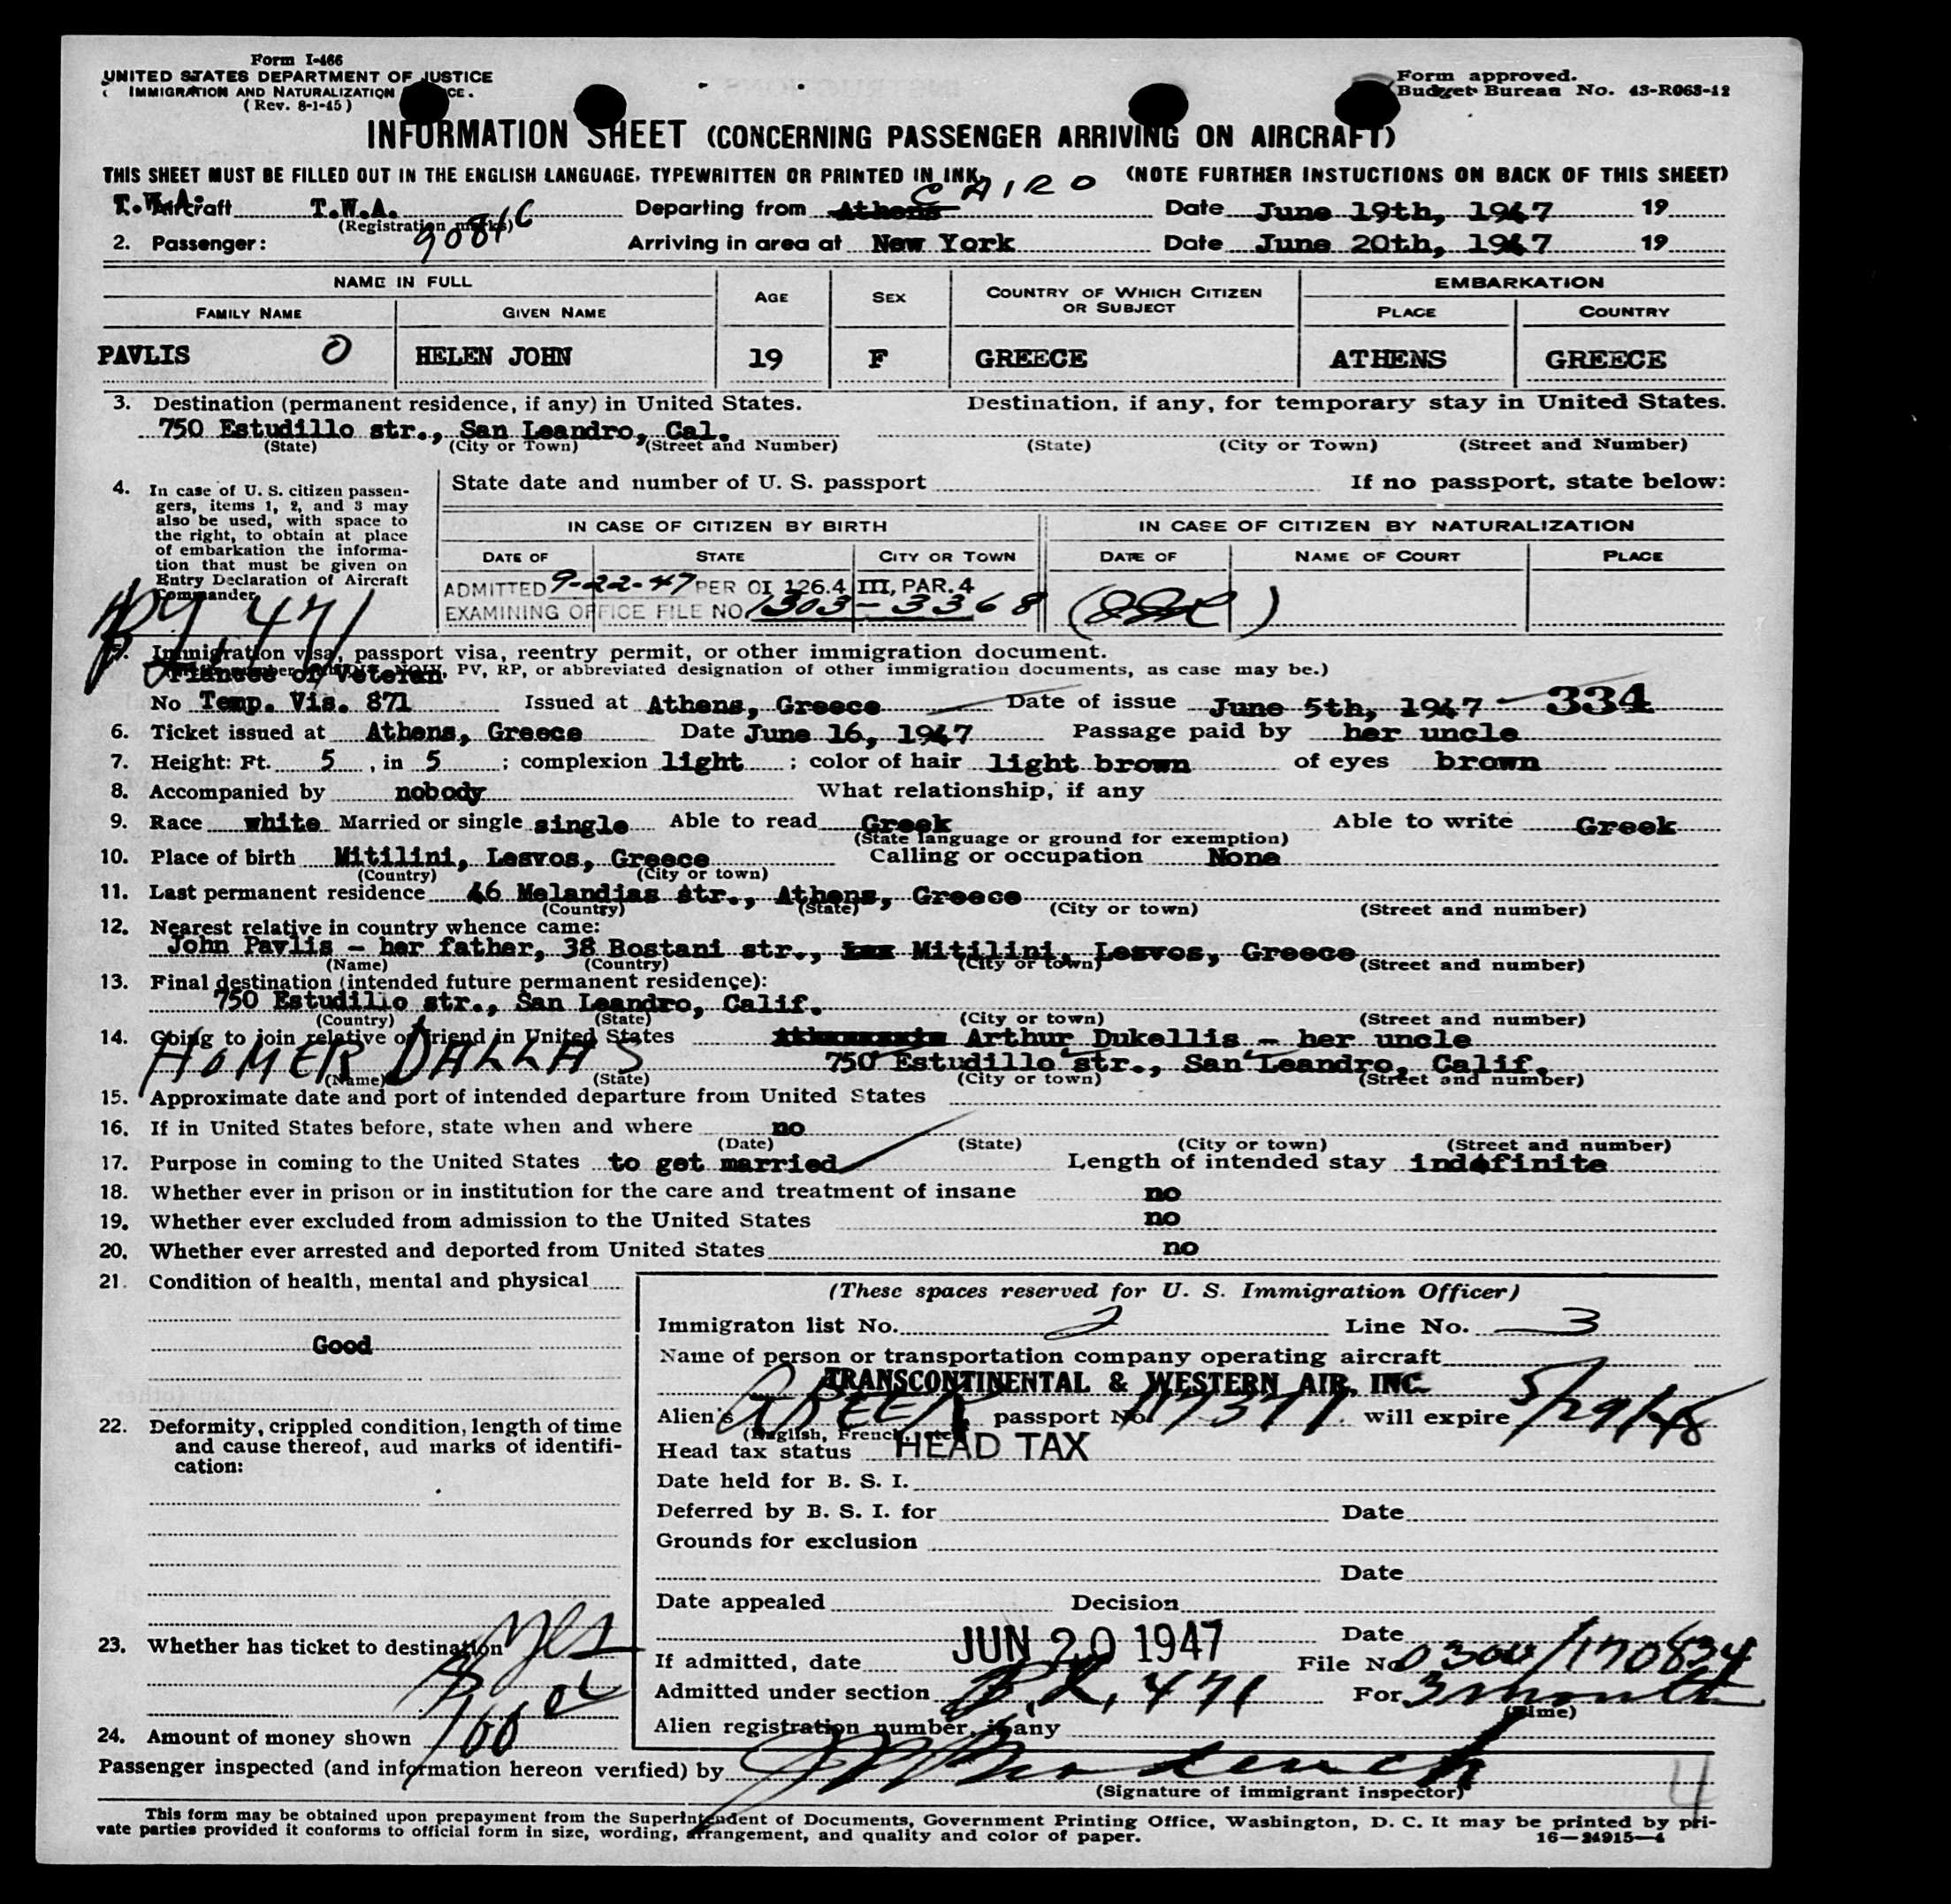 Form I-466
UNITED STATES DEPARTMENT OF JUSTICE
IMMIGRATION AND NATURALIZATION CE.
(Rev. 8-1-45)
Form approved.
Budget Bureau No. 43-R063-12
INFORMATION SHEET (CONCERNING PASSENGER ARRIVING ON AIRCRAFT)
THIS SHEET MUST BE FILLED OUT IN THE ENGLISH LANGUAGE, TYPEWRITTEN OR PRINTED IN INK. (NOTE FURTHER INSTUCTIONS ON BACK OF THIS SHEET)
CAIRO
T.W.A. Aircraft T.W.A. Departing from Athens Date June 19th, 1947 19
(Registration marks) 90816
2. Passenger: Arriving in area at New York Date June 20th, 1947 19
NAME IN FULL AGE SEX COUNTRY OF WHICH CITIZEN OR SUBJECT EMBARKATION
FAMILY NAME GIVEN NAME PLACE COUNTRY
PAVLIS 0 HELEN JOHN 19 F GREECE ATHENS GREECE
3. Destination (permanent residence, if any) in United States. Destination, if any, for temporary stay in United States.
750 Estudillo str., San Leandro, Cal.
(State) (City or Town) (Street and Number) (State) (City or Town) (Street and Number)
4. In case of U. S. citizen passen-
gers, items 1, 2, and 3 may
also be used, with space to
the right, to obtain at place
of embarkation the informa-
tion that must be given on
Entry Declaration of Aircraft
Commander.
State date and number of U. S. passport If no passport, state below:
IN CASE OF CITIZEN BY BIRTH IN CASE OF CITIZEN BY NATURALIZATION
DATE OF STATE CITY OR TOWN DATE OF NAME OF COURT PLACE
ADMITTED 9-22-47 PER OI 126.4 III, PAR. 4
EXAMINING OFFICE FILE NO. 1303-3368
471
5. Immigration visa, passport visa, reentry permit, or other immigration document.
PV, RP, or abbreviated designation of other immigration documents, as case may be.)
Fiancee of Veteran
No Temp. Vis. 871 Issued at Athens, Greece Date of issue June 5th, 1947 - 334
6. Ticket issued at Athens, Greece Date June 16, 1947 Passage paid by her uncle
7. Height: Ft. 5, in 5; complexion light; color of hair light brown of eyes brown
8. Accompanied by nobody What relationship, if any
9. Race white Married or single single Able to read Greek Able to write Greek
(State language or ground for exemption)
10. Place of birth Mitilini, Lesvos, Greece Calling or occupation None
(Country) (City or town)
11. Last permanent residence 46 Melandias str., Athens, Greece
(Country) (State) (City or town) (Street and number)
12. Nearest relative in country whence came:
John Pavlis - her father, 38 Bostani str., Mitilini, Lesvos, Greece
(Name) (Country) (City or town) (Street and number)
13. Final destination (intended future permanent residence):
750 Estudillo str., San Leandro, Calif.
(Country) (State) (City or town) (Street and number)
14. Going to join relative or friend in United States Arthur Dukellis - her uncle
HOMER DALLAS 750 Estudillo str., San Leandro, Calif.
(Name) (State) (City or town) (Street and number)
15. Approximate date and port of intended departure from United States
16. If in United States before, state when and where no
(Date) (State) (City or town) (Street and number)
17. Purpose in coming to the United States to get married Length of intended stay indefinite
18. Whether ever in prison or in institution for the care and treatment of insane no
19. Whether ever excluded from admission to the United States no
20. Whether ever arrested and deported from United States no
21. Condition of health, mental and physical
Good
22. Deformity, crippled condition, length of time
and cause thereof, aud marks of identifi-
cation:
23. Whether has ticket to destination Yes
24. Amount of money shown $100 00
(These spaces reserved for U. S. Immigration Officer)
Immigraton list No. 2 Line No. 3
Name of person or transportation company operating aircraft
TRANSCONTINENTAL & WESTERN AIR, INC.
Alien's GREEK passport No. 17377 will expire 5/29/48
(English, French, etc.)
Head tax status HEAD TAX
Date held for B. S. I.
Deferred by B. S. I. for Date
Grounds for exclusion
Date
Date appealed Decision
Date
If admitted, date JUN 20 1947 File No 0300/170834
Admitted under section P.L. 471 For 3 month
(Time)
Alien registration number, if any
Passenger inspected (and information hereon verified) by
(Signature of immigrant inspector)
4
This form may be obtained upon prepayment from the Superintendent of Documents, Government Printing Office, Washington, D. C. It may be printed by pri-
vate parties provided it conforms to official form in size, wording, arrangement, and quality and color of paper.
16-24915-4